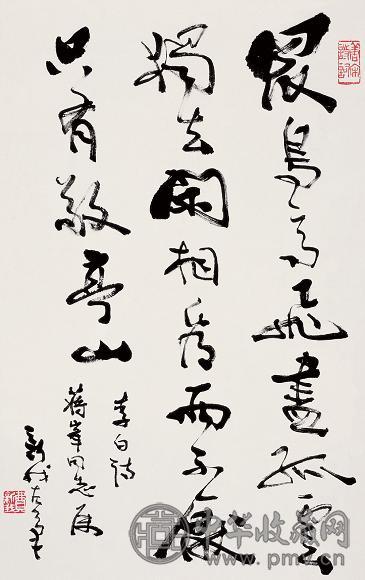 眾鳥高飛盡孤雲
獨去閑相看兩不厭
只有敬亭山
李白詩
蔣峯同志屬
新我左筆
中华收藏网